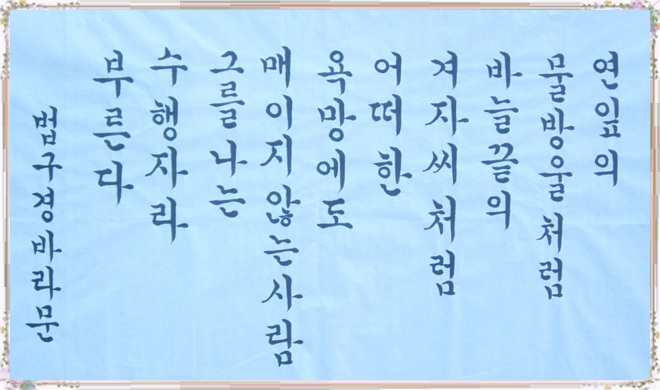 연잎의
물방울처럼
바늘끝의
겨자씨처럼
어떠한
욕망에도
매이지않는사람
그를나는
수행자라
부른다
법구경바라문